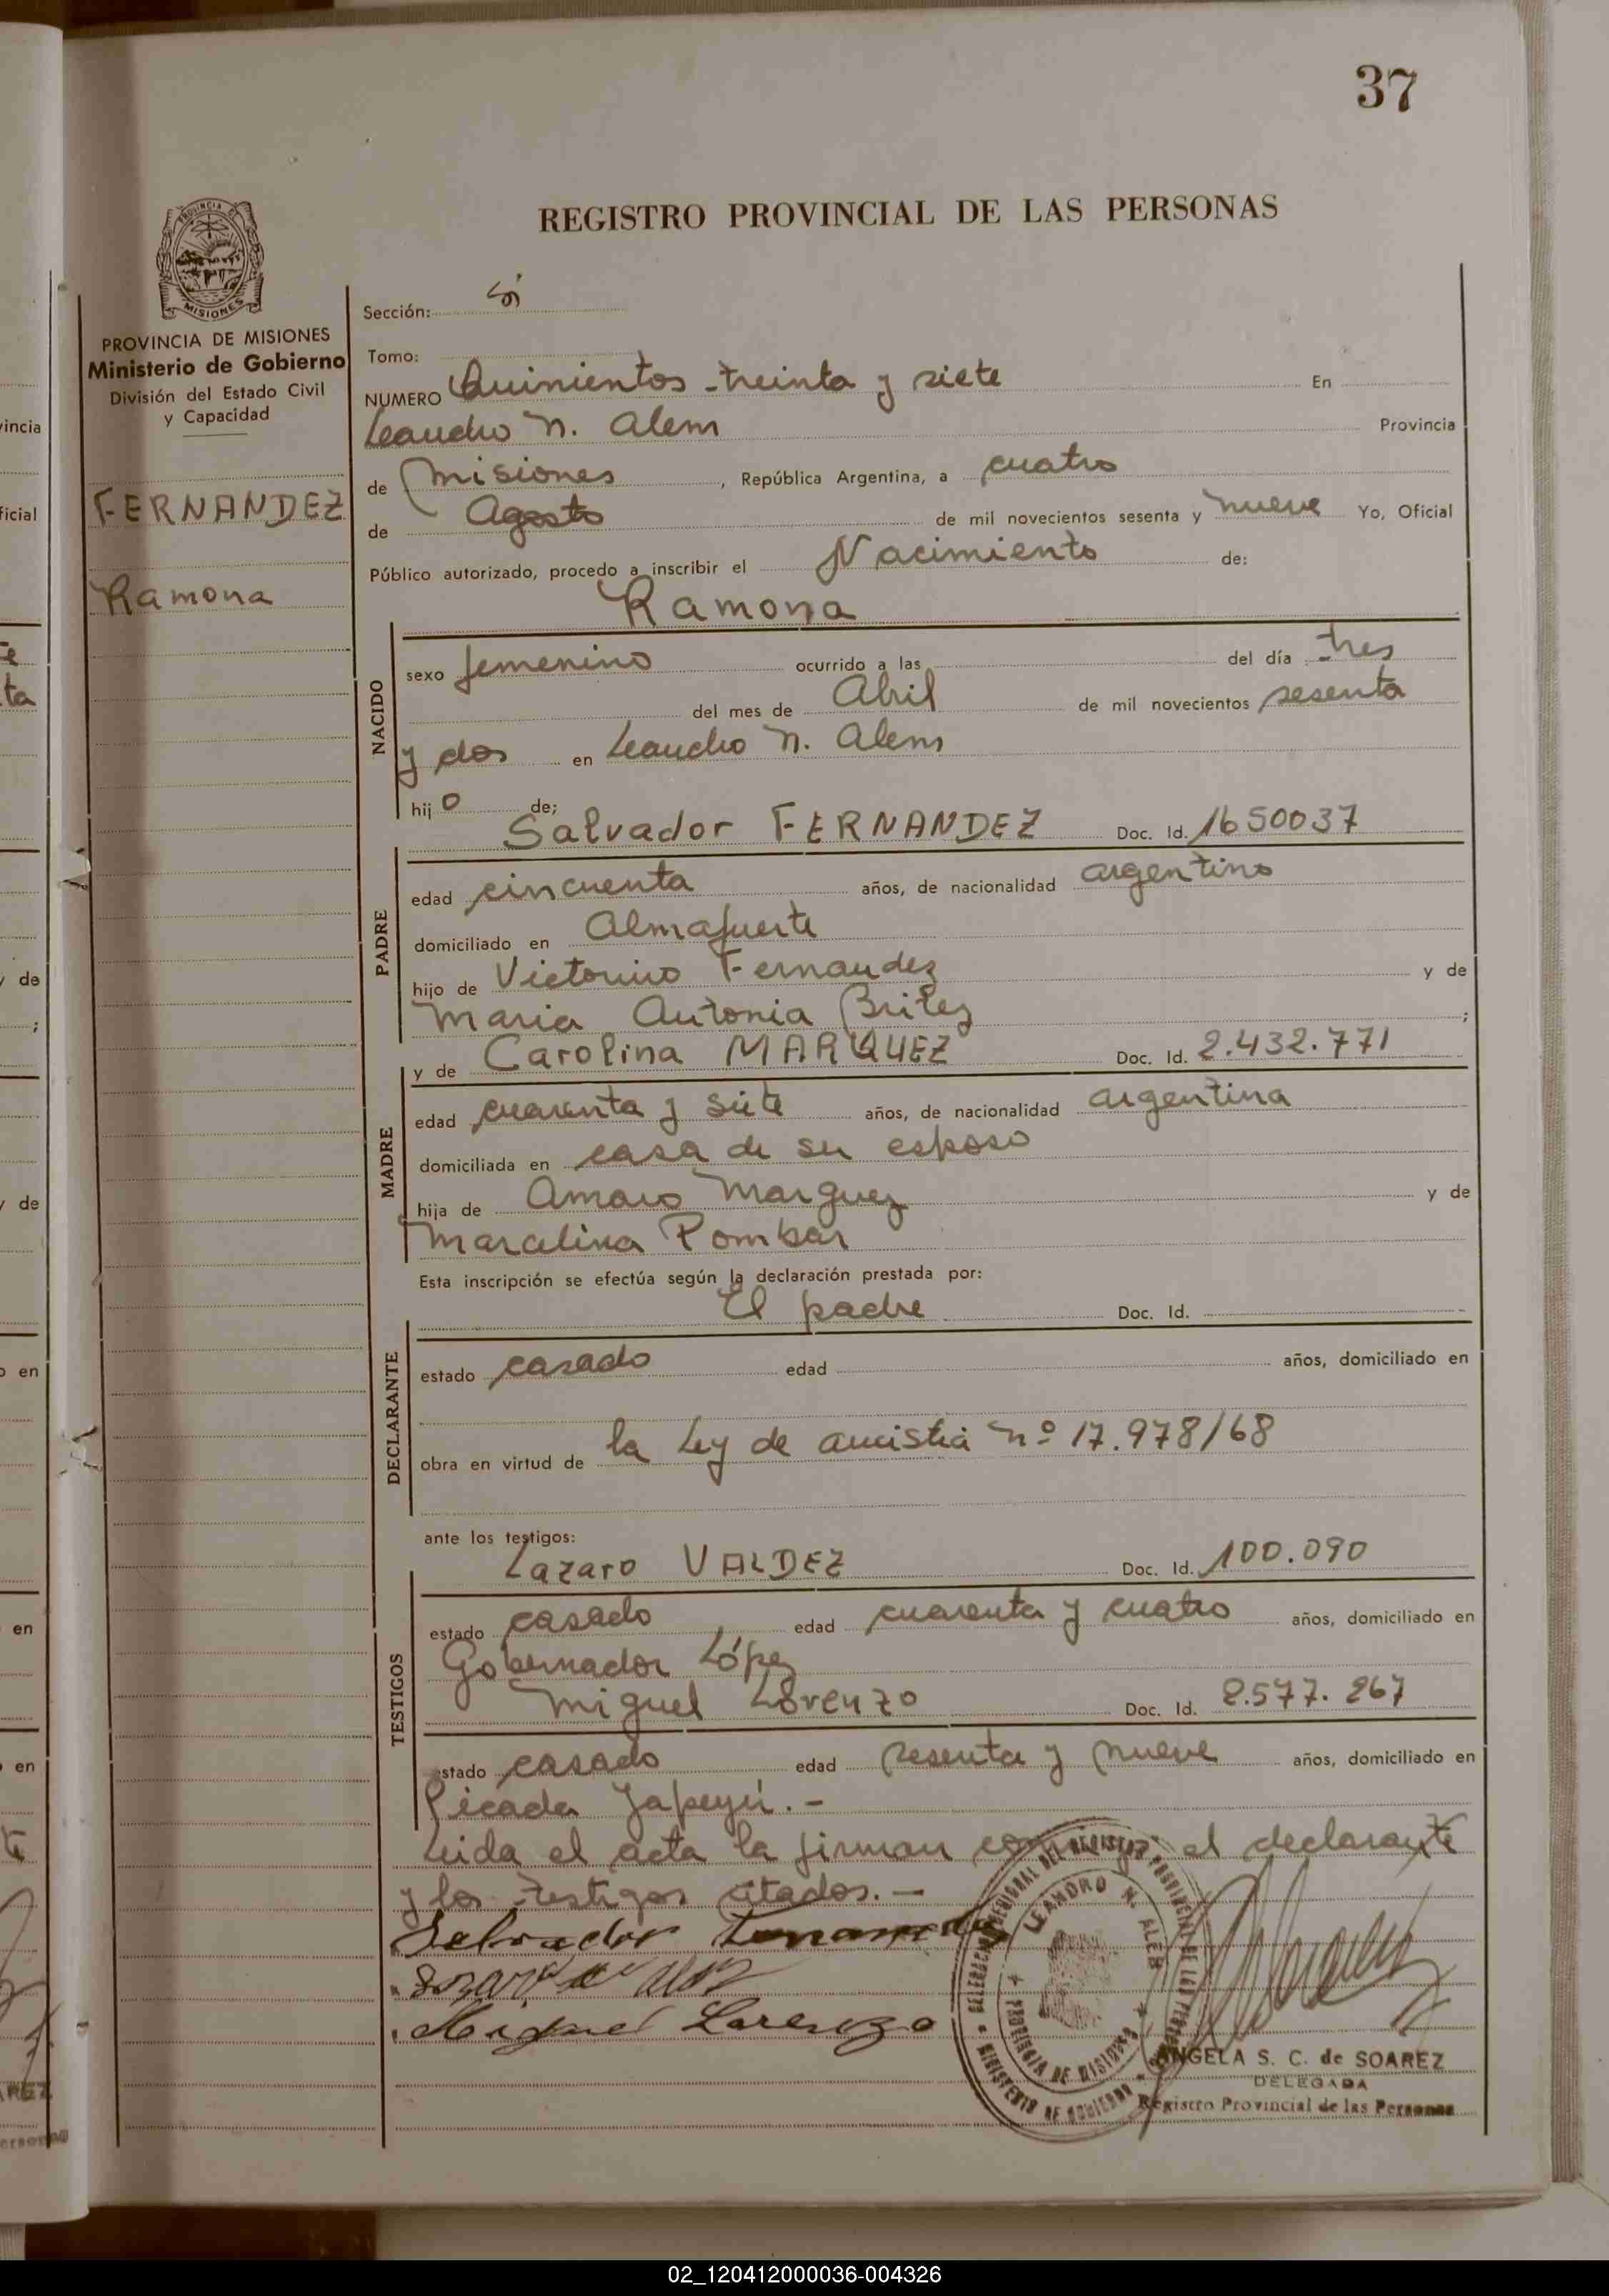 37
REGISTRO PROVINCIAL DE LAS PERSONAS
PROVINCIA DE MISIONES
Ministerio de Gobierno
División del Estado Civil
y Capacidad
FERNANDEZ
Ramona
Sección:
Tomo:
NUMERO Quinientos treinta y siete En
Leandro N. Alem Provincia
de Misiones, República Argentina, a cuatro
de Agosto de mil novecientos sesenta y nueve Yo, Oficial
Público autorizado, procedo a inscribir el Nacimiento de:
Ramona
NACIDO
sexo femenino ocurrido a las del día tres
del mes de Abril de mil novecientos sesenta
y dos en Leandro N. Alem
hijo de;
Salvador FERNANDEZ Doc. Id. 1650037
PADRE
edad cincuenta años, de nacionalidad argentino
domiciliado en Almafuerte
hijo de Victorino Fernandez y de
Maria Antonia Britez ;
y de Carolina MARQUEZ Doc. Id. 2.432.771
MADRE
edad cuarenta y siete años, de nacionalidad argentina
domiciliada en casa de su esposo
hija de Amaro Marquez y de
Marcelina Pombar
Esta inscripción se efectúa según la declaración prestada por:
El padre Doc. Id.
DECLARANTE
estado casado edad años, domiciliado en
obra en virtud de la Ley de amistia nº 17.978/68
ante los testigos:
Lazaro VALDEZ Doc. Id. 100.090
TESTIGOS
estado casado edad cuarenta y cuatro años, domiciliado en
Gobernador López
Miguel Lorenzo Doc. Id. 2.577.267
estado casado edad sesenta y nueve años, domiciliado en
Picada Yapeyú.-
Leida el acta la firman conmigo el declarante
y los testigos citados.-
Salvador Fernandez
Miguel Lorenzo
LEANDRO N. ALEM
PROVINCIA DE MISIONES
MINISTERIO DE GOBIERNO
ANGELA S. C. de SOAREZ
DELEGADA
Registro Provincial de las Personas
02_120412000036-004326